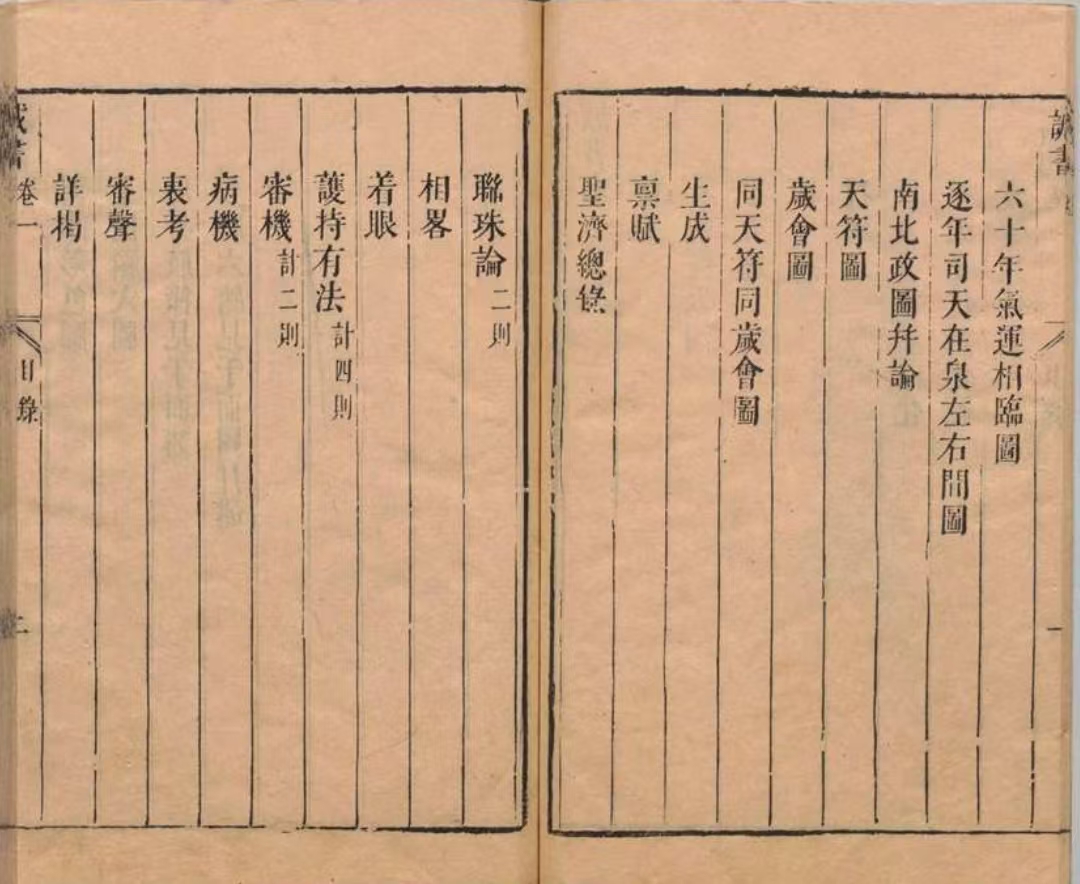 六十年氣運相臨圖
逐年司天在泉左右間圖
南北政圖幷論
天符圖
歲會圖
同天符同歲會圖
生成
禀賦
聖濟總彔
聮珠論二則
相畧
着眼
護持有法計四則
審機計二則
病機
表考
審聲
詳揭
卷一 目錄 二